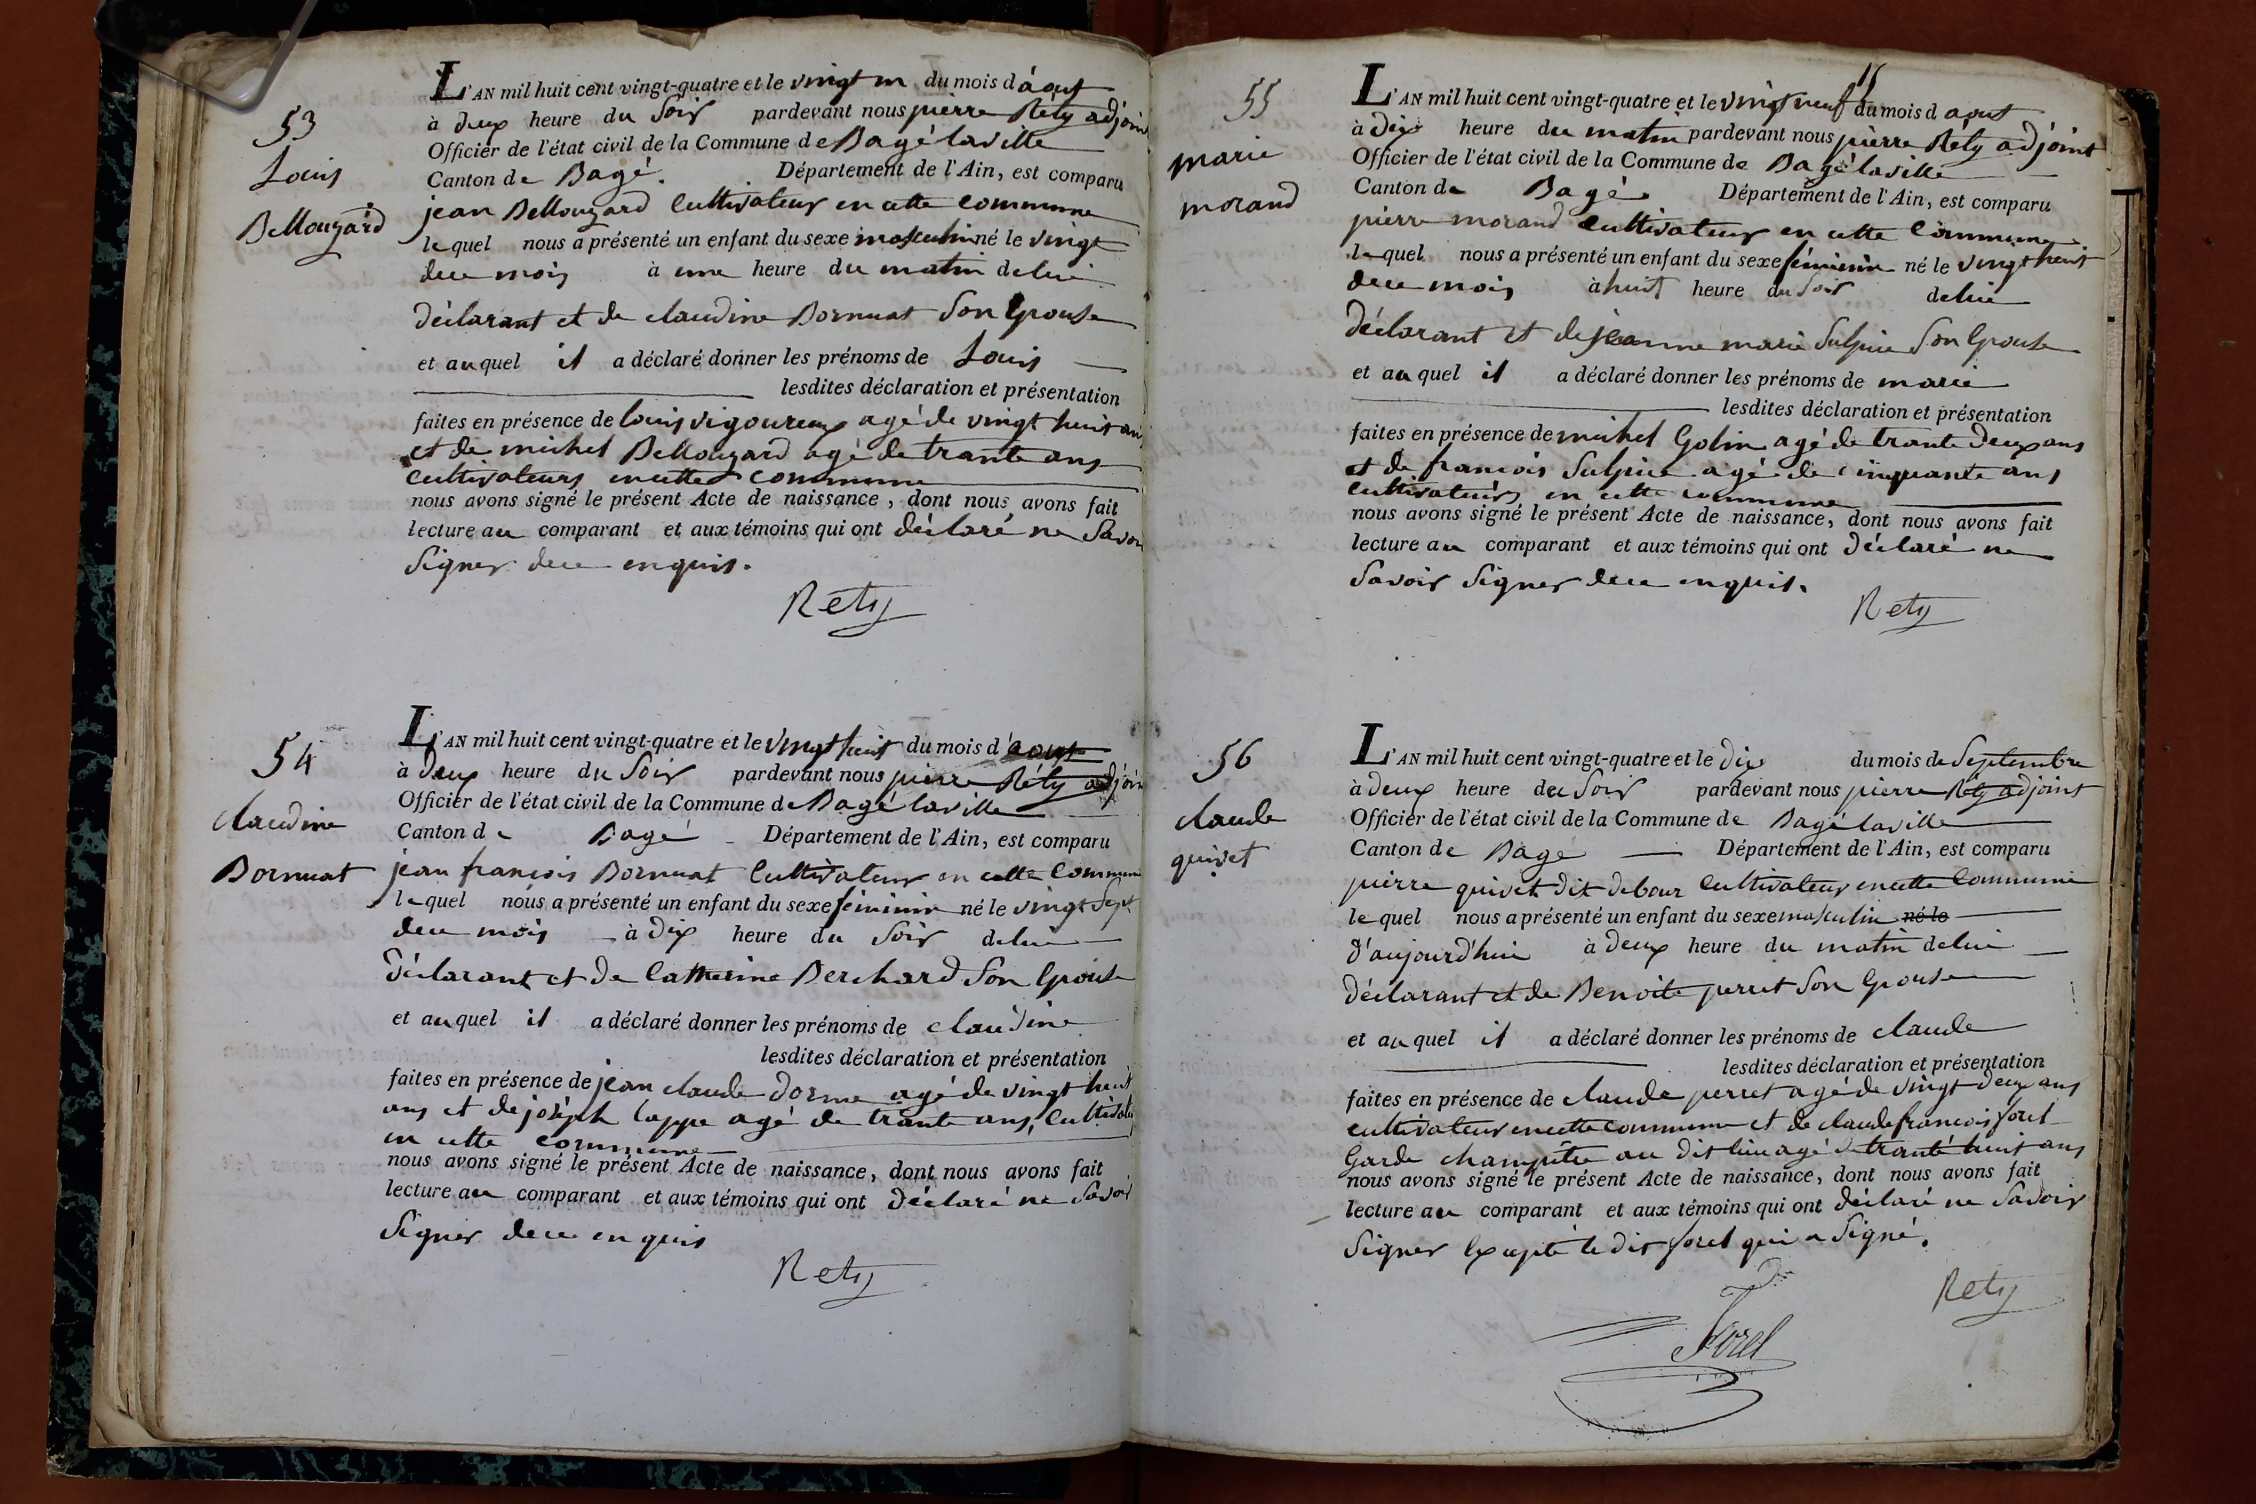 53
Louis
Bellouzard
L'AN mil huit cent vingt-quatre et le vingt un du mois d'aout
à deux heure du Soir pardevant nous pierre Réty adjoint
Officier de l'état civil de la Commune de Bagé laville
Canton de Bagé. Département de l'Ain, est comparu
jean Bellouzard Cultivateur en cette commune
lequel nous a présenté un enfant du sexe masculin né le vingt
de ce mois à une heure du matin de lui
déclarant et de claudine Bornuat Son Epouse
et auquel il a déclaré donner les prénoms de Louis
lesdites déclaration et présentation
faites en présence de louis vigoureux agé de vingt huit ans
et de michel Bellouzard agé de trante ans
cultivateurs en cette commune
nous avons signé le présent Acte de naissance, dont nous avons fait
lecture au comparant et aux témoins qui ont déclaré ne Savoir
Signer de ce enquis.
Rety
54
claudine
Bornuat
L'AN mil huit cent vingt-quatre et le vingt huit du mois d'aout
à deux heure du Soir pardevant nous pierre Réty adjoint
Officier de l'état civil de la Commune de Bagé laville
Canton de Bagé Département de l'Ain, est comparu
jean françois Bornuat Cultivateur en cette Commune
lequel nous a présenté un enfant du sexe féminin né le vingt Sept
de ce mois à dix heure du Soir de lui
déclarant et de Catherine Berchard Son Epouse
et auquel il a déclaré donner les prénoms de claudine
lesdites déclaration et présentation
faites en présence de jean claude dorme agé de vingt huit
ans et de joséph Cappe agé de trante ans, Cultivateurs
en cette commune
nous avons signé le présent Acte de naissance, dont nous avons fait
lecture au comparant et aux témoins qui ont déclaré ne Savoir
Signer de ce enquis
Rety
55
marie
morand
L'AN mil huit cent vingt-quatre et le vingt neuf du mois d aout
à dix heure du matin pardevant nous pierre Réty adjoint
Officier de l'état civil de la Commune de Bagé laville
Canton de Bagé Département de l'Ain, est comparu
pierre morand cultivateur en cette Commune
lequel nous a présenté un enfant du sexe féminin né le vingt huit
de ce mois à huit heure du Soir de lui
déclarant et de jeanne marie Sulpice Son Epouse
et au quel il a déclaré donner les prénoms de marie
lesdites déclaration et présentation
faites en présence de michel Golin agé de trante deux ans
et de francois Sulpice agé de cinquante ans
cultivateurs en cette commune
nous avons signé le présent Acte de naissance, dont nous avons fait
lecture au comparant et aux témoins qui ont déclaré ne
Savoir Signer de ce enquis.
Rety
56
claude
quivet
L'AN mil huit cent vingt-quatre et le dix du mois de Septembre
à deux heure du Soir pardevant nous pierre Réty adjoint
Officier de l'état civil de la Commune de Bagé laville
Canton de Bagé Département de l'Ain, est comparu
pierre quivet dit debour Cultivateur en cette Commune
lequel nous a présenté un enfant du sexe masculin né le
d'aujourd'hui à deux heure du matin de lui
déclarant et de Benoite perret Son Epouse
et au quel il a déclaré donner les prénoms de claude
lesdites déclaration et présentation
faites en présence de claude perret agé de vingt deux ans
cultivateur en cette commune et de claude francois forel
Garde champêtre au dit lieu agé de trante huit ans
nous avons signé le présent Acte de naissance, dont nous avons fait
lecture au comparant et aux témoins qui ont déclaré ne Savoir
Signer Excepté le dit forel qui a Signé.
Rety
Forel